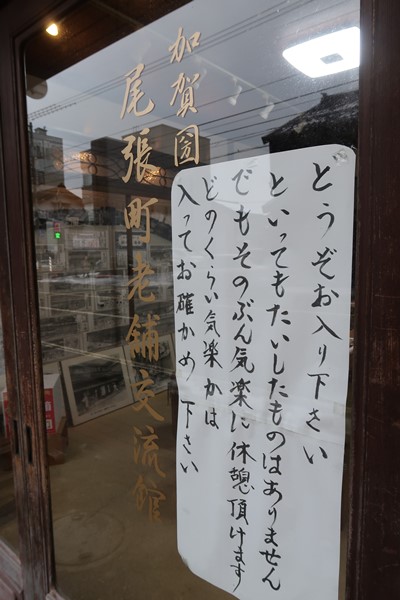 どうぞお入り下さい
といってもたいしたものはありません
でもそのぶん気楽に休憩頂けます
どのくらい気楽かは
入ってお確かめ下さい
加賀圀
尾張町老舗交流館